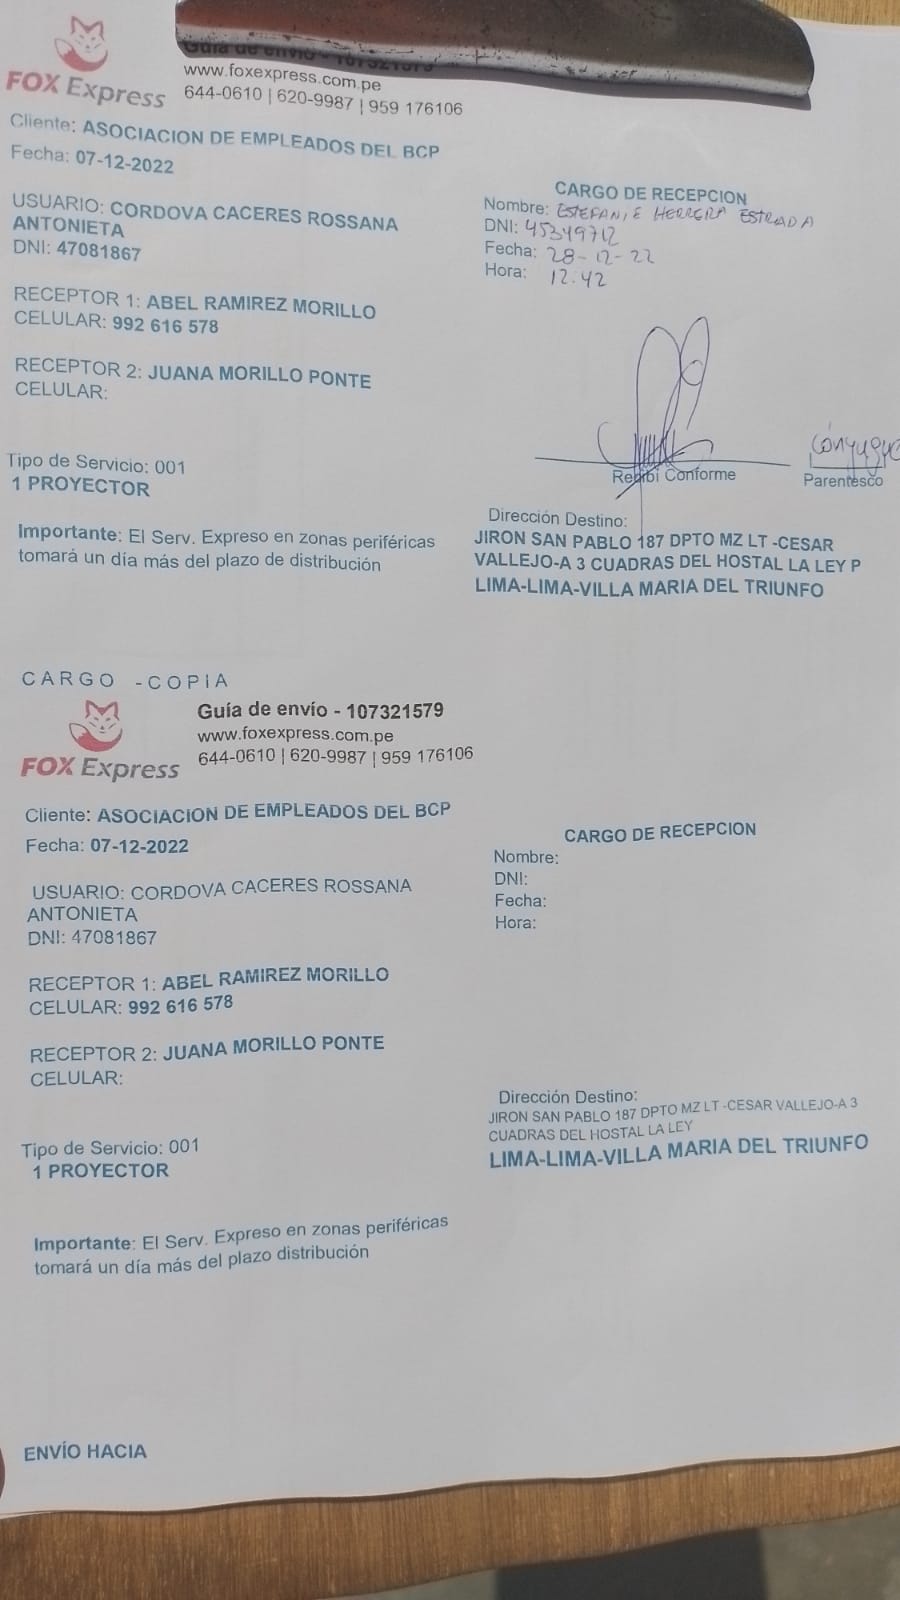 Guía de envío - 107321579
FOX Express
www.foxexpress.com.pe
644-0610 | 620-9987 | 959 176106
Cliente: ASOCIACION DE EMPLEADOS DEL BCP
Fecha: 07-12-2022
USUARIO: CORDOVA CACERES ROSSANA
ANTONIETA
DNI: 47081867
RECEPTOR 1: ABEL RAMIREZ MORILLO
CELULAR: 992 616 578
RECEPTOR 2: JUANA MORILLO PONTE
CELULAR:
Tipo de Servicio: 001
1 PROYECTOR
Importante: El Serv. Expreso en zonas periféricas
tomará un día más del plazo de distribución
CARGO DE RECEPCION
Nombre: ESTEFANIE HERRERA ESTRADA
DNI: 45349712
Fecha: 28-12-22
Hora: 12:42
Recibi Conforme
Cónyugue
Parentesco
Dirección Destino:
JIRON SAN PABLO 187 DPTO MZ LT -CESAR
VALLEJO-A 3 CUADRAS DEL HOSTAL LA LEY P
LIMA-LIMA-VILLA MARIA DEL TRIUNFO
CARGO -COPIA
FOX Express
Guía de envío - 107321579
www.foxexpress.com.pe
644-0610 | 620-9987 | 959 176106
Cliente: ASOCIACION DE EMPLEADOS DEL BCP
Fecha: 07-12-2022
USUARIO: CORDOVA CACERES ROSSANA
ANTONIETA
DNI: 47081867
RECEPTOR 1: ABEL RAMIREZ MORILLO
CELULAR: 992 616 578
RECEPTOR 2: JUANA MORILLO PONTE
CELULAR:
Tipo de Servicio: 001
1 PROYECTOR
Importante: El Serv. Expreso en zonas periféricas
tomará un día más del plazo distribución
CARGO DE RECEPCION
Nombre:
DNI:
Fecha:
Hora:
Dirección Destino:
JIRON SAN PABLO 187 DPTO MZ LT -CESAR VALLEJO-A 3
CUADRAS DEL HOSTAL LA LEY
LIMA-LIMA-VILLA MARIA DEL TRIUNFO
ENVÍO HACIA